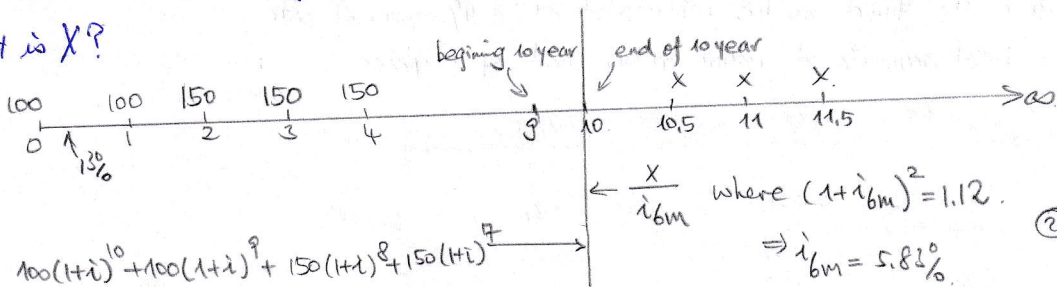 t is X?
begining 10 year end of 10 year
100 100 150 150 150 X X X.
0 1 2 3 4 9 10 10,5 11 11.5 ∞
13%
← X/i6m where (1+i6m)^2 = 1.12.
⇒ i6m = 5.83%.
2
100(1+i)^10 + 100(1+i)^9 + 150(1+i)^8 + 150(1+i)^7